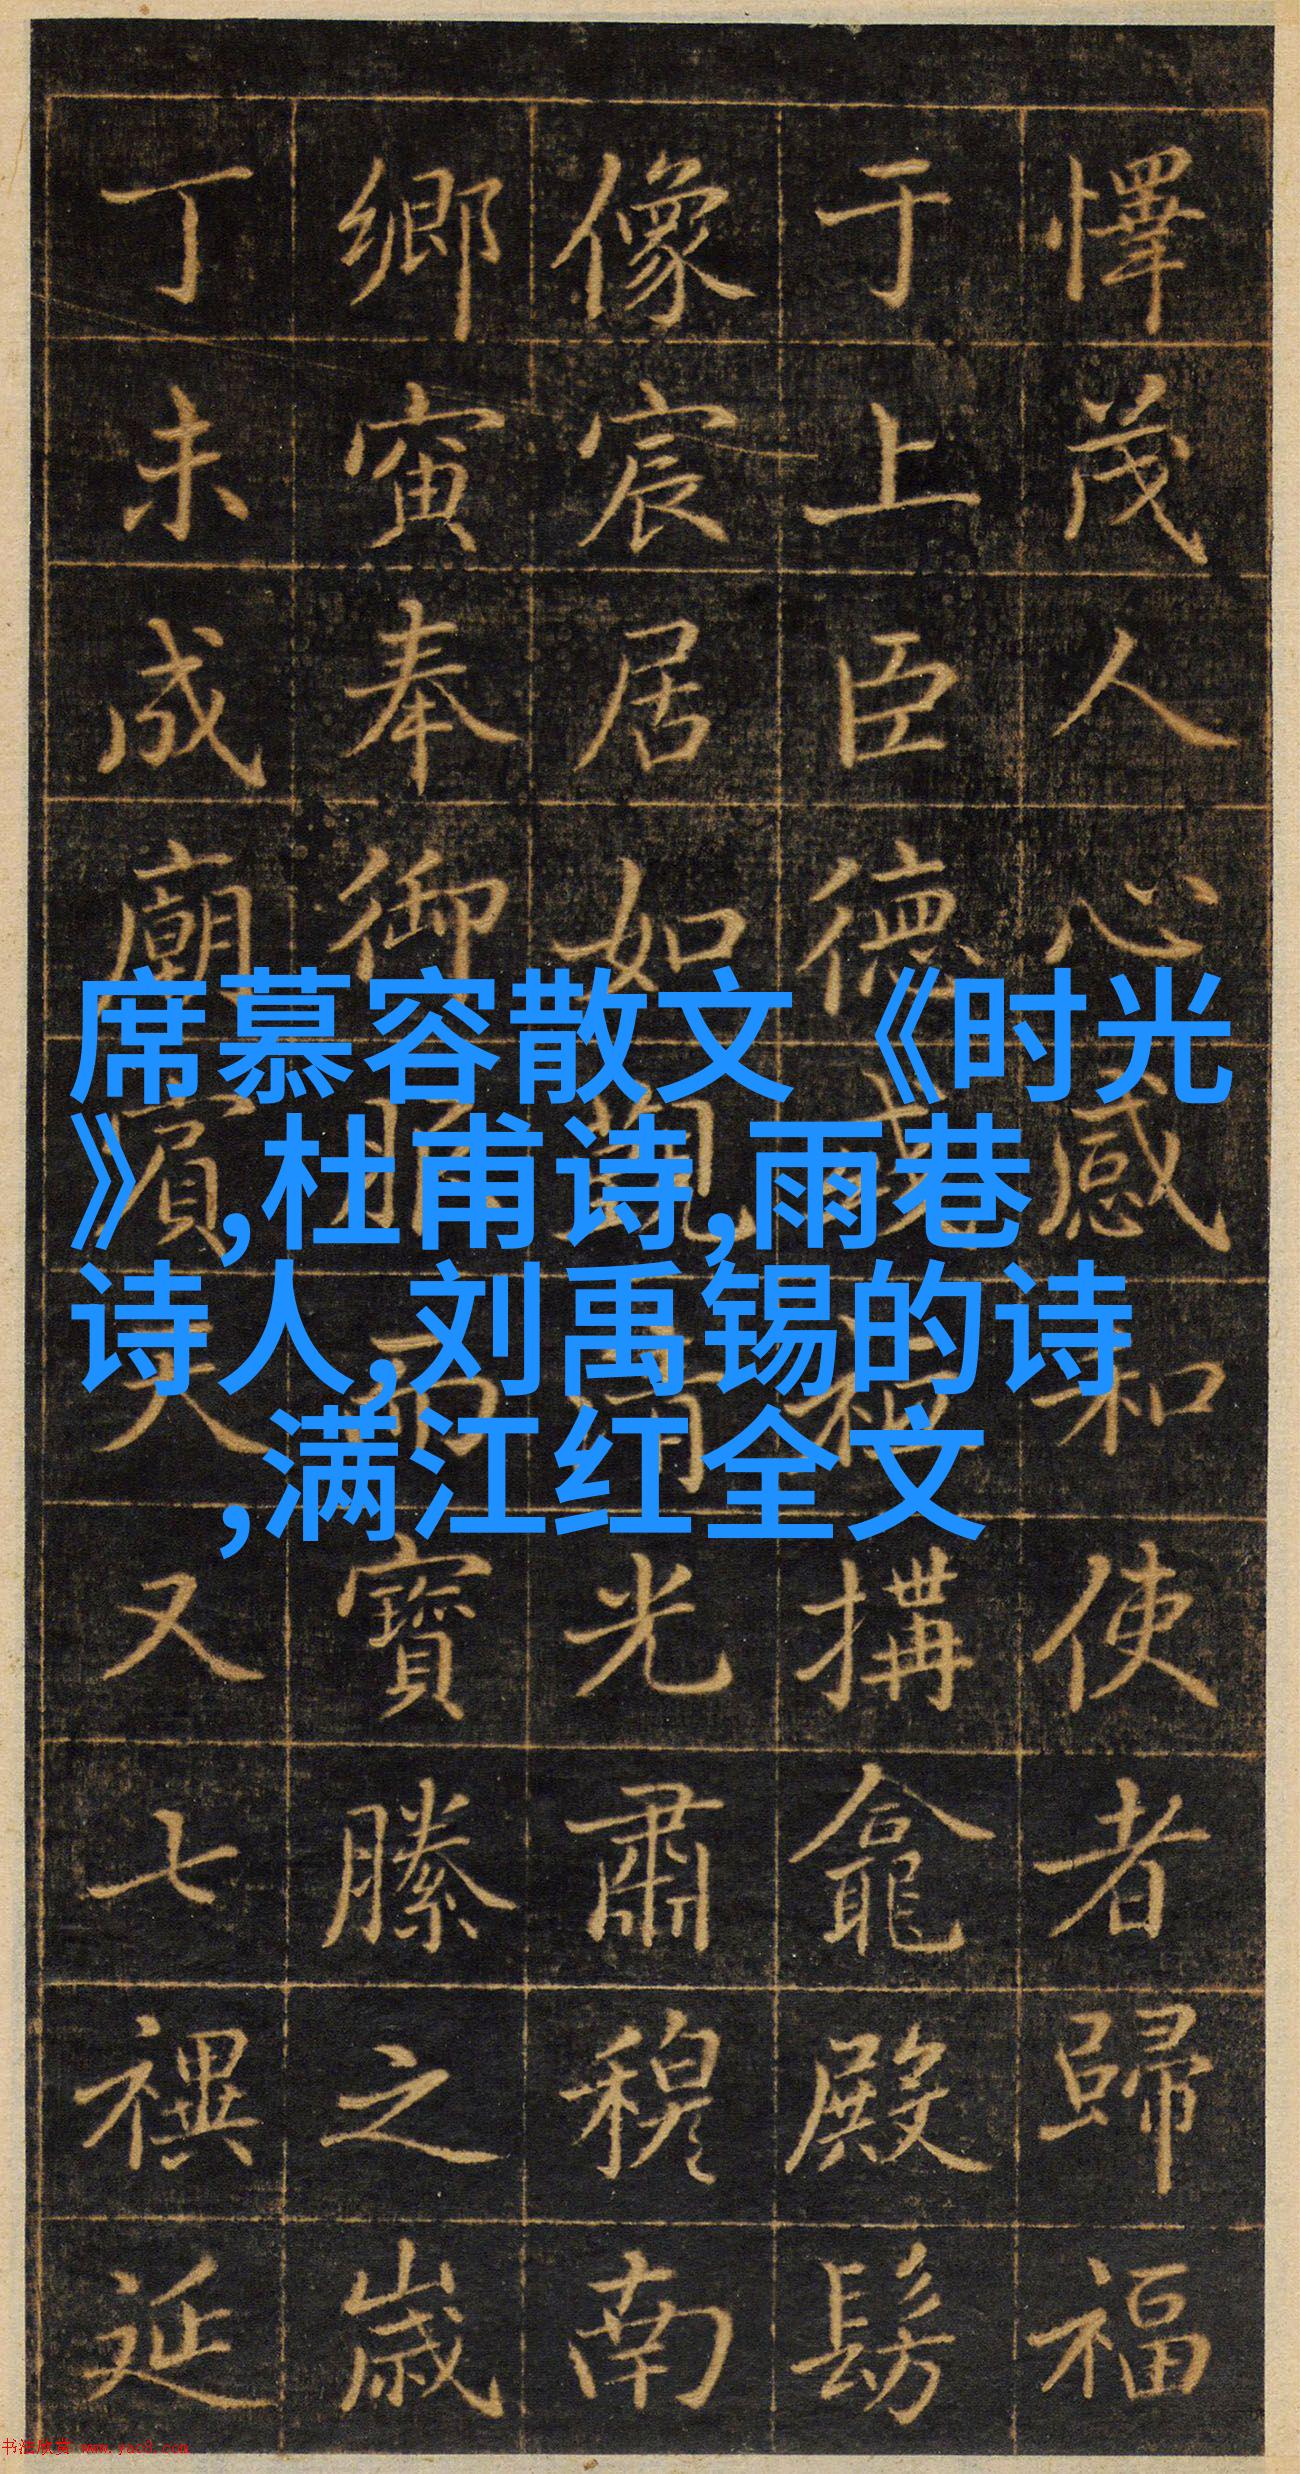 席慕容散文《时光
》,杜甫诗,雨巷
诗人,刘禹锡的诗
,满江红全文
懌茂人心感和使者歸福
于上臣德搆龕殿髣
像宸居如觀光肅穆南
鄉寅奉御寶縢之歲
丁未成廟賓天又七禩延
书法欣赏 www.yac8.com